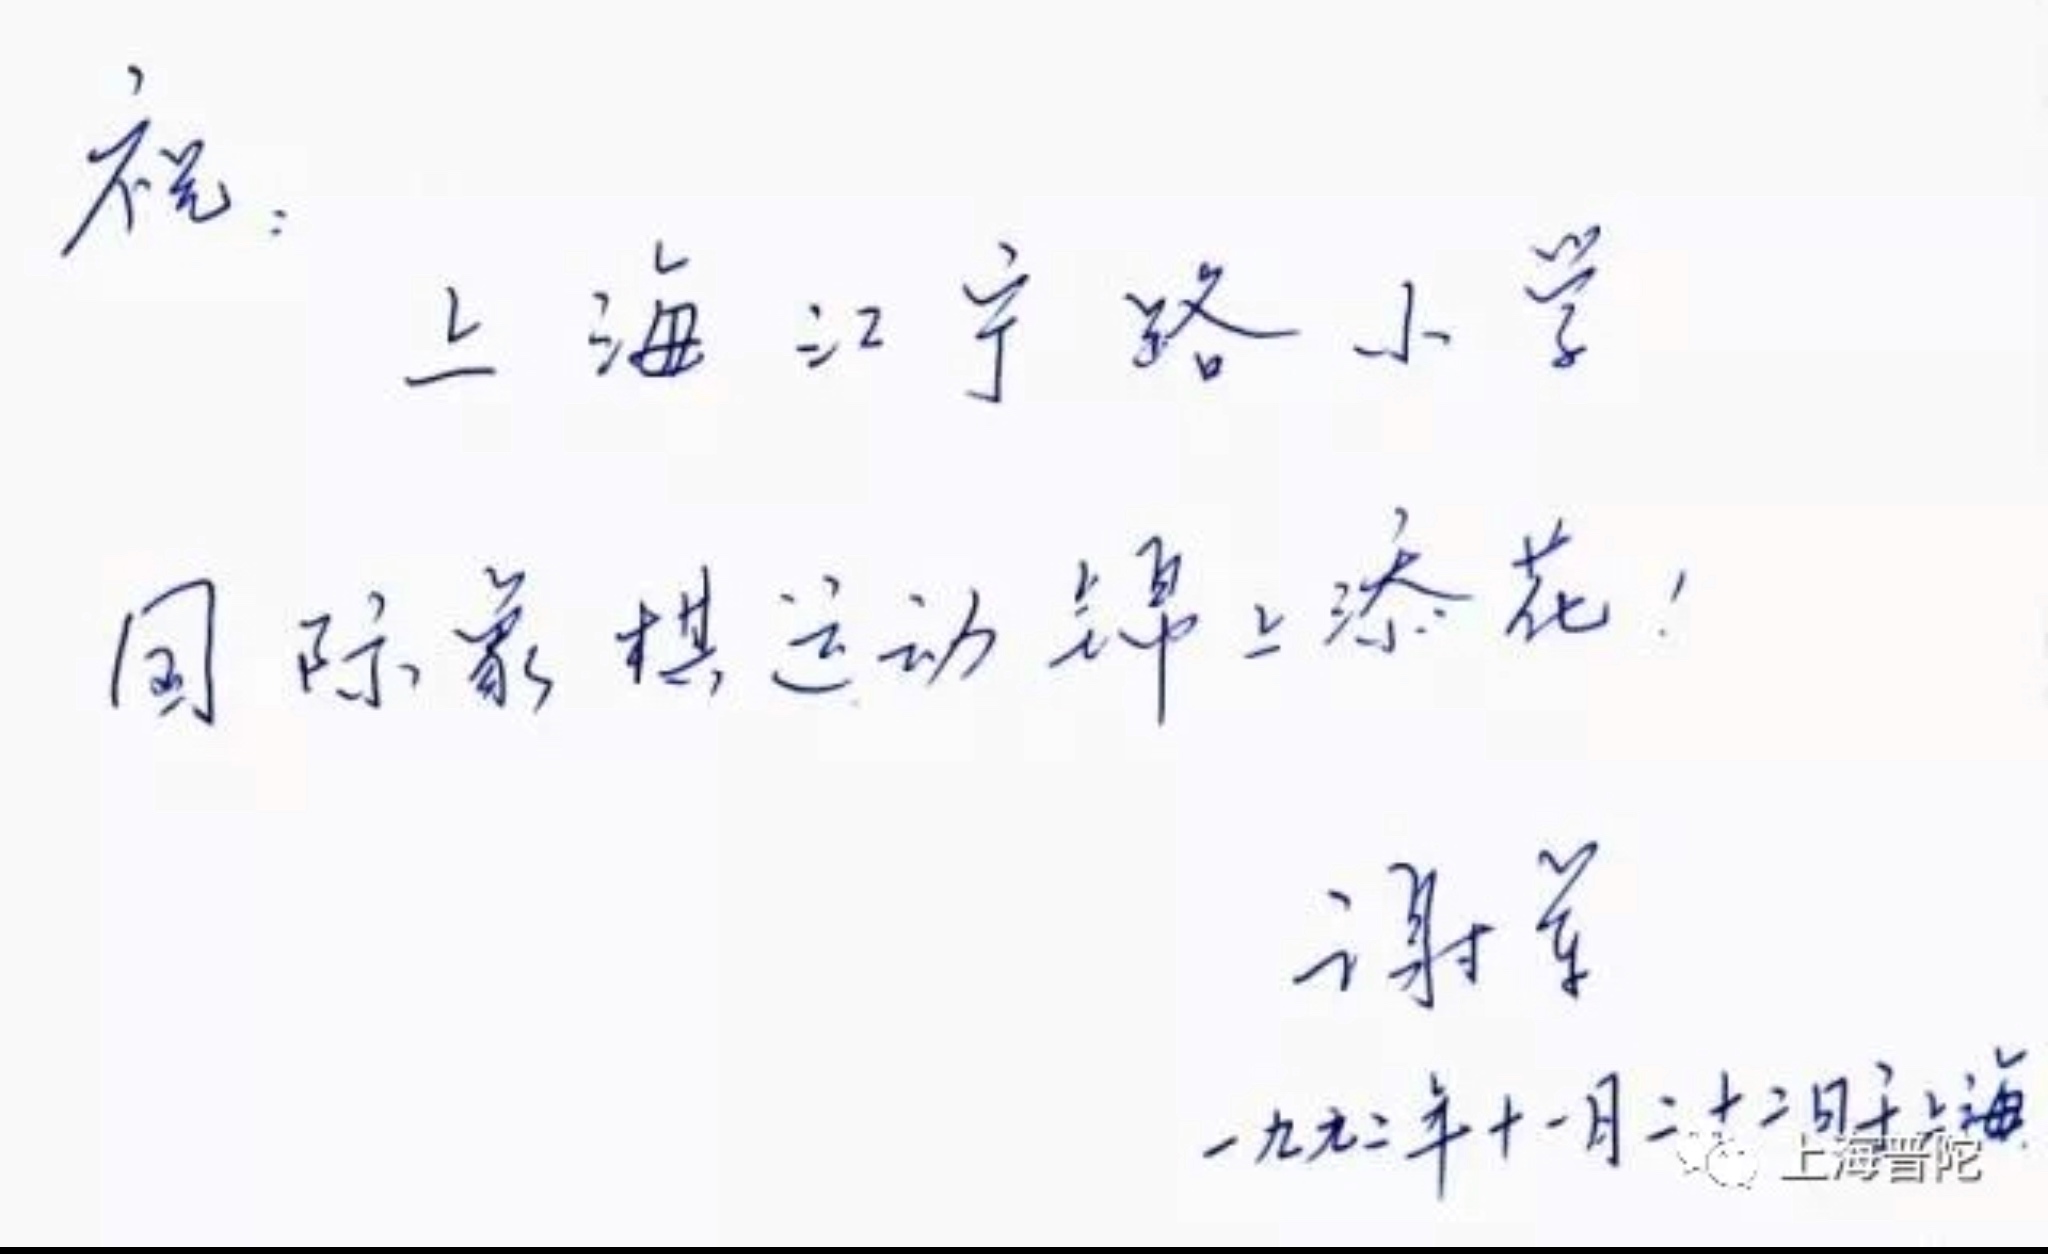 祝：
上海江宁路小学
国际象棋运动锦上添花！
谢军
一九九二年十一月二十二日于上海
上海普陀